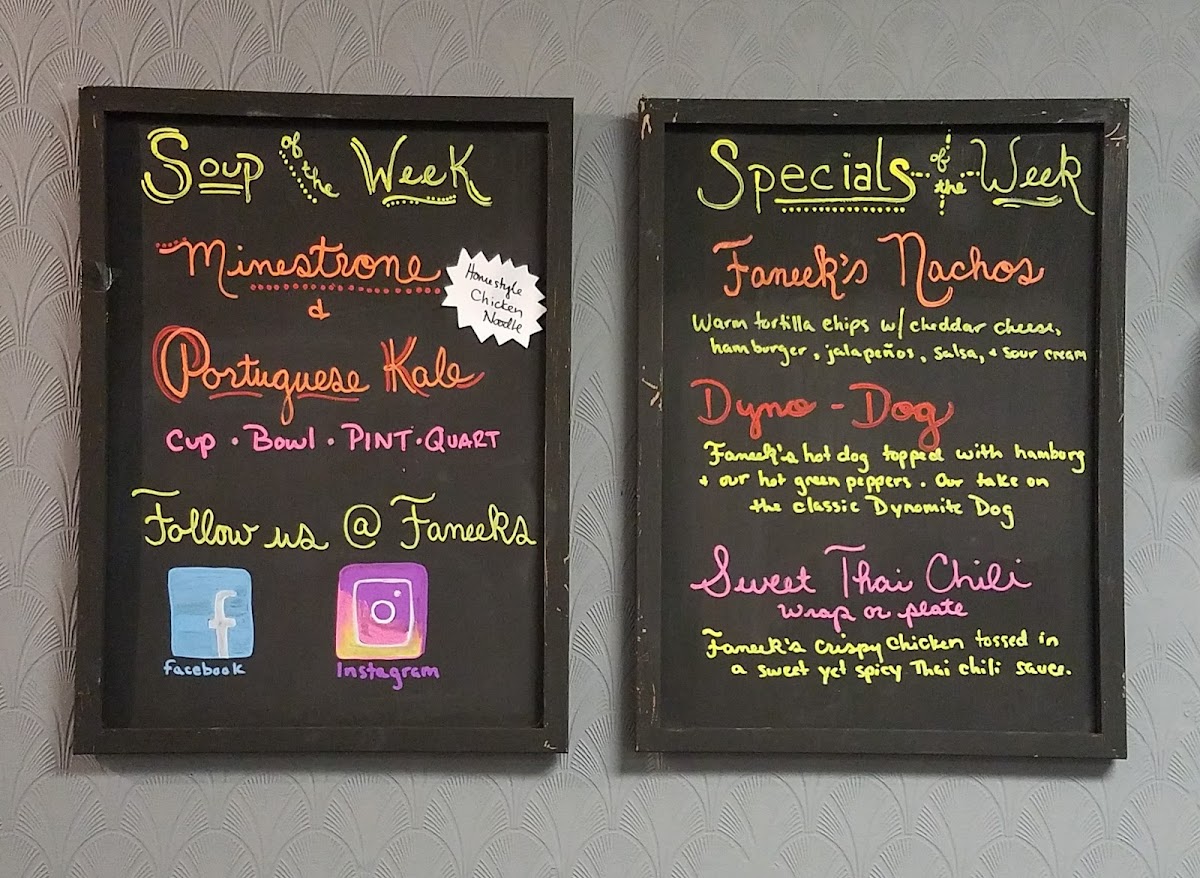 Soup of the Week
Minestrone
&
Portuguese Kale
Homestyle
Chicken
Noodle
Cup • Bowl • PINT • QUART
Follow us @ Faneeks
f
facebook
Instagram
Specials of the Week
Faneek's Nachos
Warm tortilla chips w/ cheddar cheese,
hamburger, jalapeños, salsa, + sour cream
Dyno-Dog
Faneek's hot dog topped with hamburg
+ our hot green peppers. Our take on
the classic Dynomite Dog
Sweet Thai Chili
wrap or plate
Faneek's crispy Chicken tossed in
a sweet yet spicy Thai chili sauce.